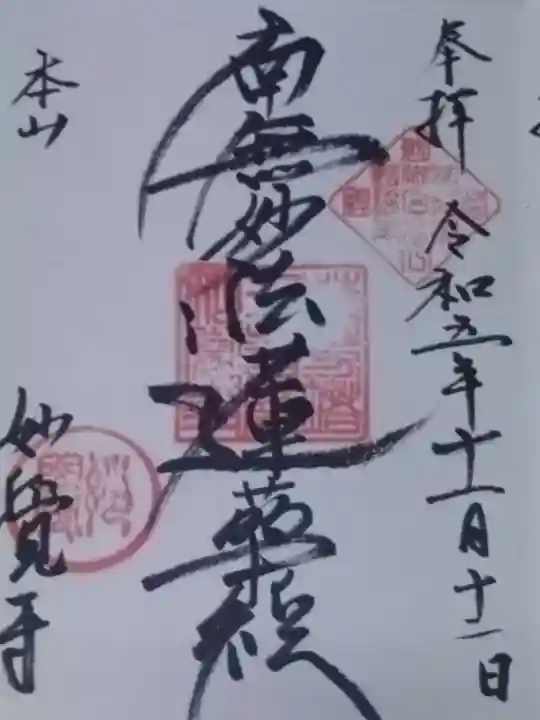 奉拝 令和五年十一月十一日
南無妙法蓮華経
本山 妙覺寺